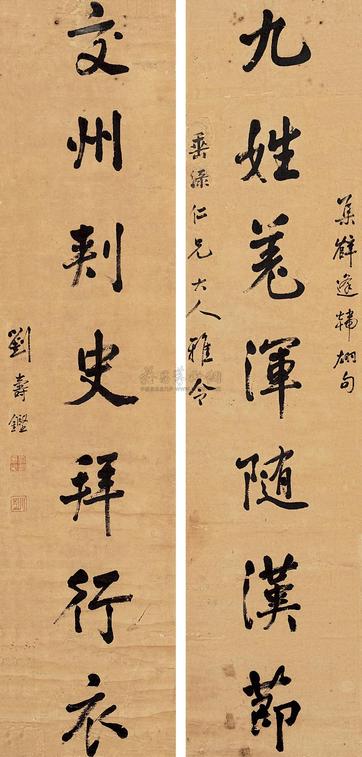 集薛逢韓翃句
九姓羌渾隨漢節
仁兄大人雅令
交州刺史拜行衣
劉壽鏗